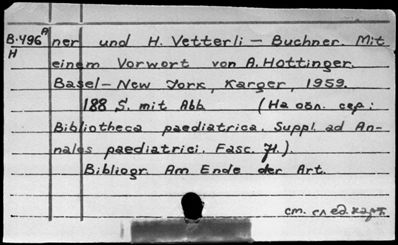 B-496 A
H
ner und H. Vetterli - Buchner. Mit
einem Vorwort von A. Hottinger.
Basel - New York, Karger, 1959.
188 S. mit Abb (На обл. сер.:
Bibliotheca paediatrica. Suppl. ad An-
nales paediatrici. Fasc. 71.).
Bibliogr. Am Ende der Art.
см. сл ед. карт.